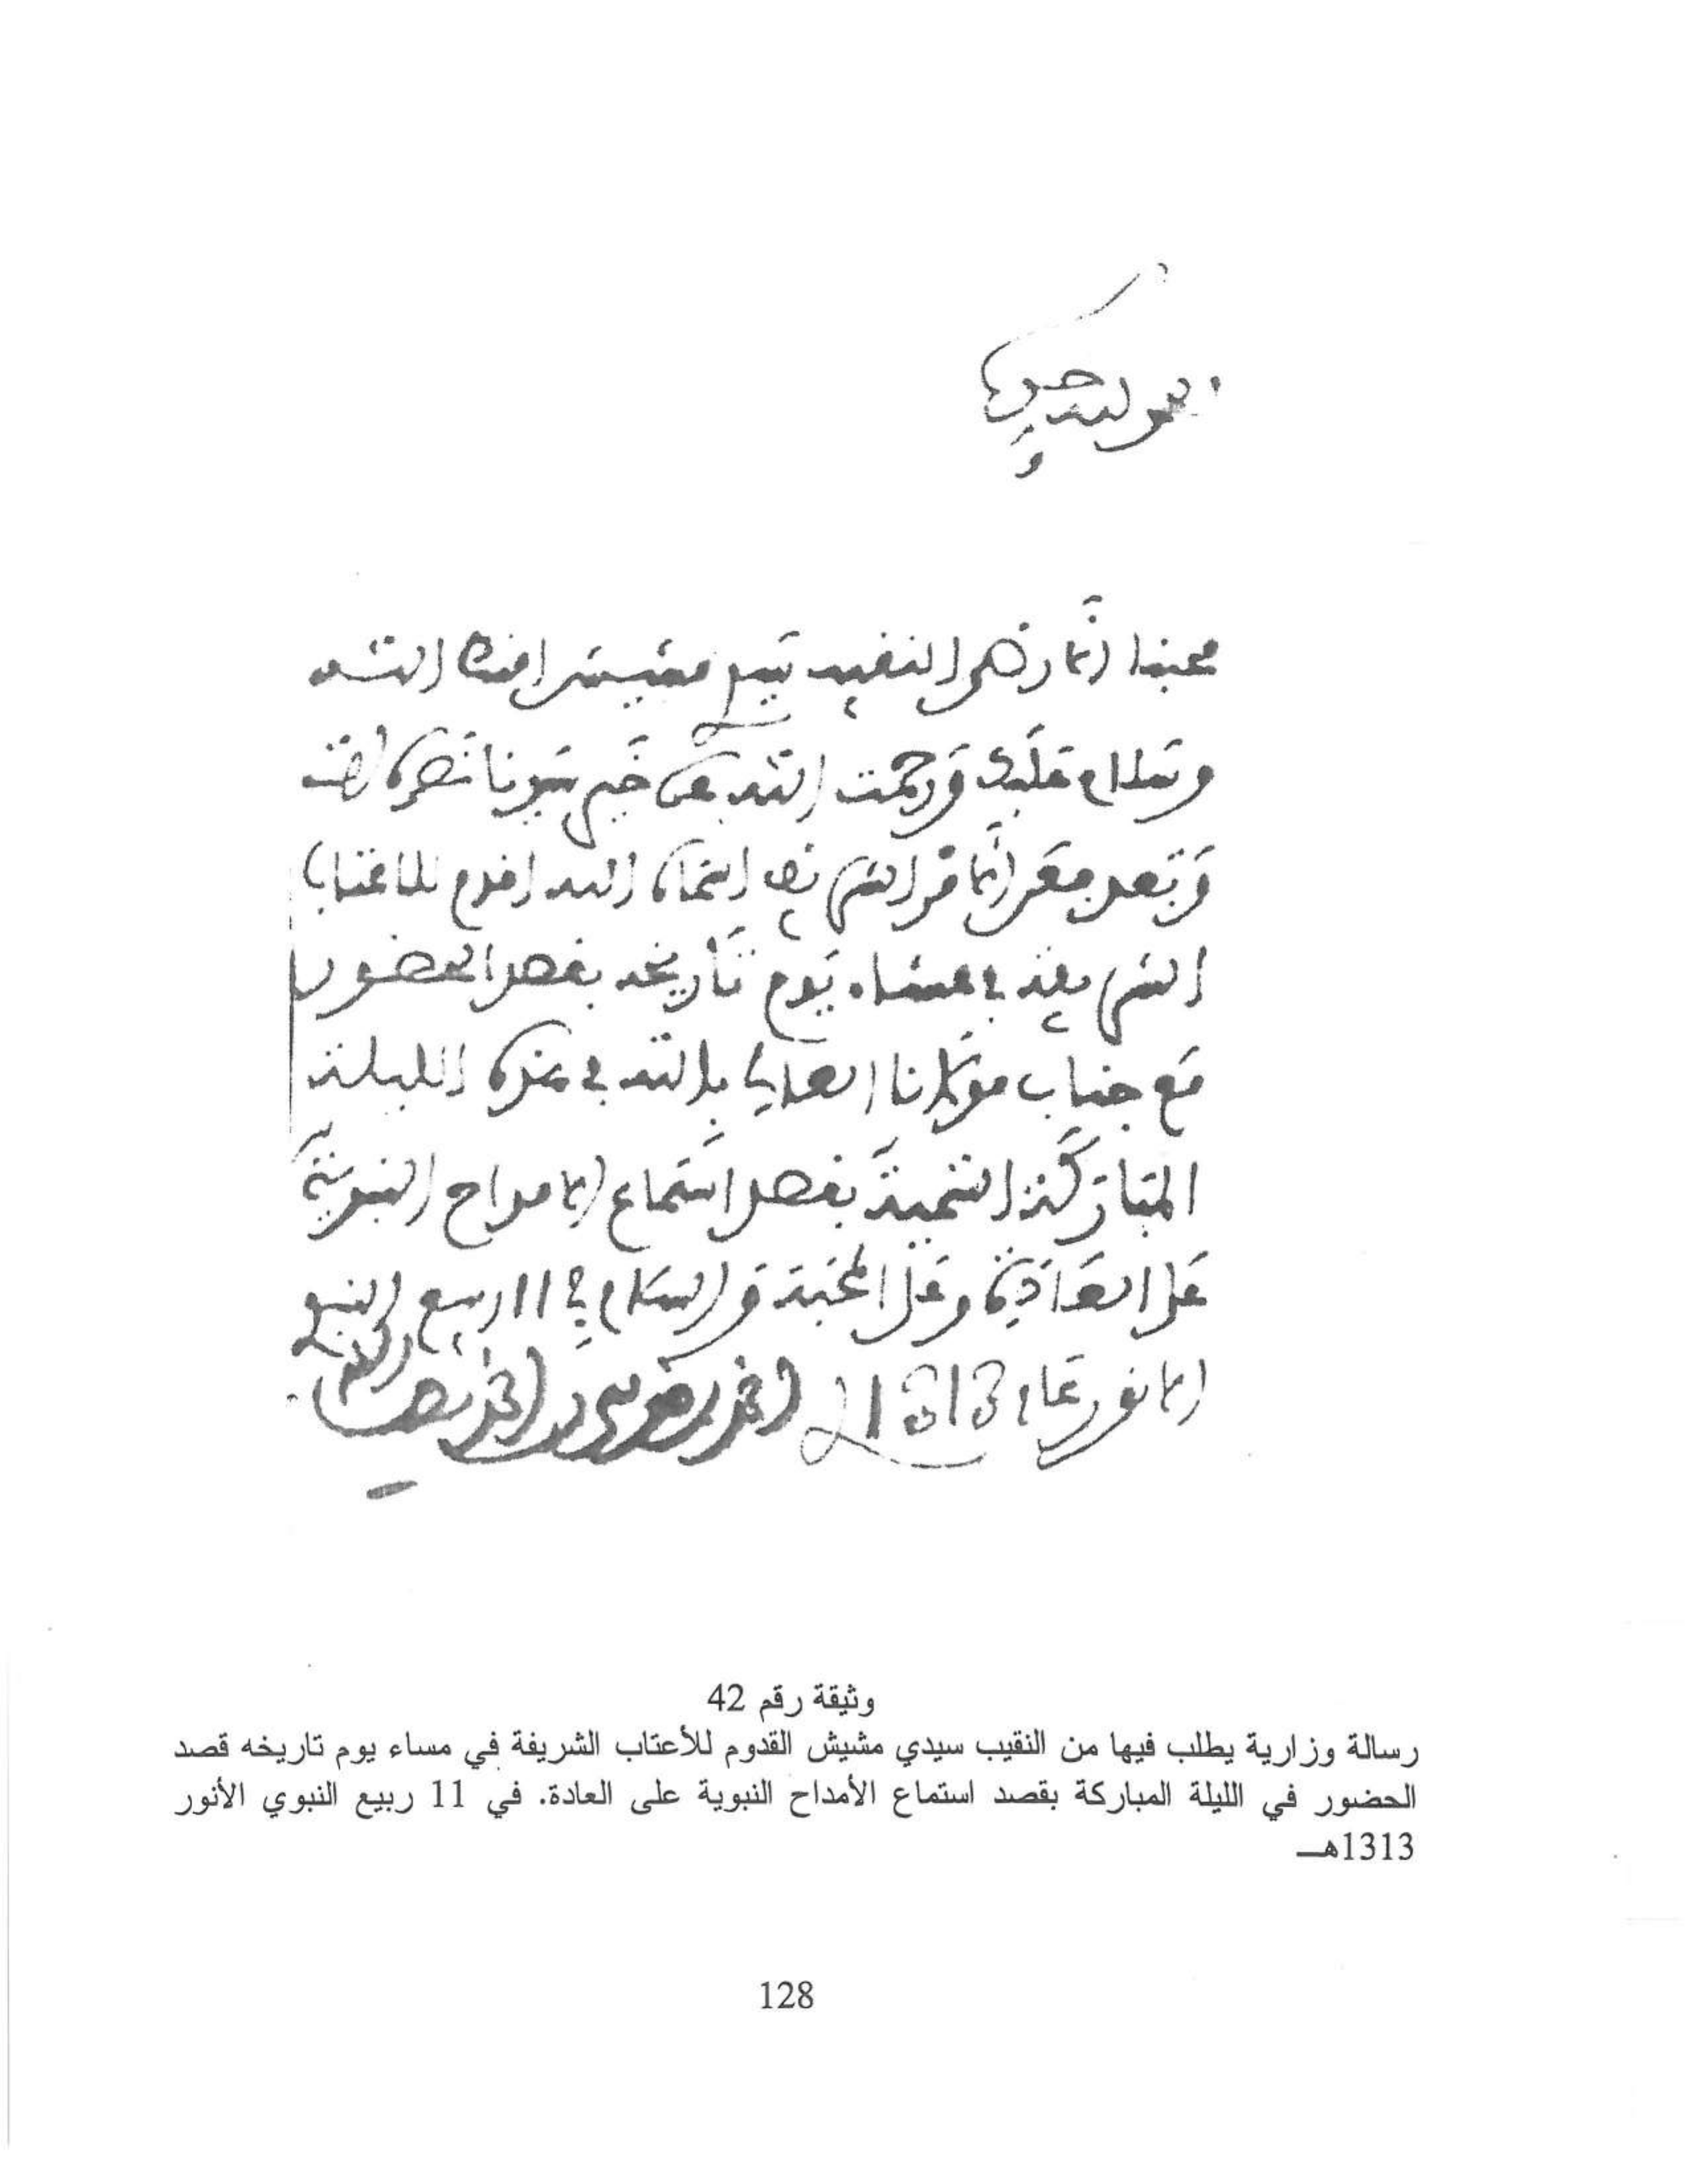 الحمد لله وحده
محبنا الأرضى النقيب سيدي مشيش امنك الله
وسلام عليك ورحمت الله عن خير سيدنا نصره الله
وبعد فقد أمر الشريف أسماه الله اقدم للاعتاب
الشريفة في مساء يوم تاريخه بقصد الحضور
مع جناب مولانا العلي بالله في هذه الليلة
المباركة الثمينة بقصد استماع الامداح النبوية
على العادة وعلى المحبة والسلام في 11 ربيع النبوي
الانور عام 1313
وثيقة رقم 42
رسالة وزارية يطلب فيها من النقيب سيدي مشيش القدوم للأعتاب الشريفة في مساء يوم تاريخه قصد
الحضور في الليلة المباركة بقصد استماع الأمداح النبوية على العادة. في 11 ربيع النبوي الأنور
1313هـ
128